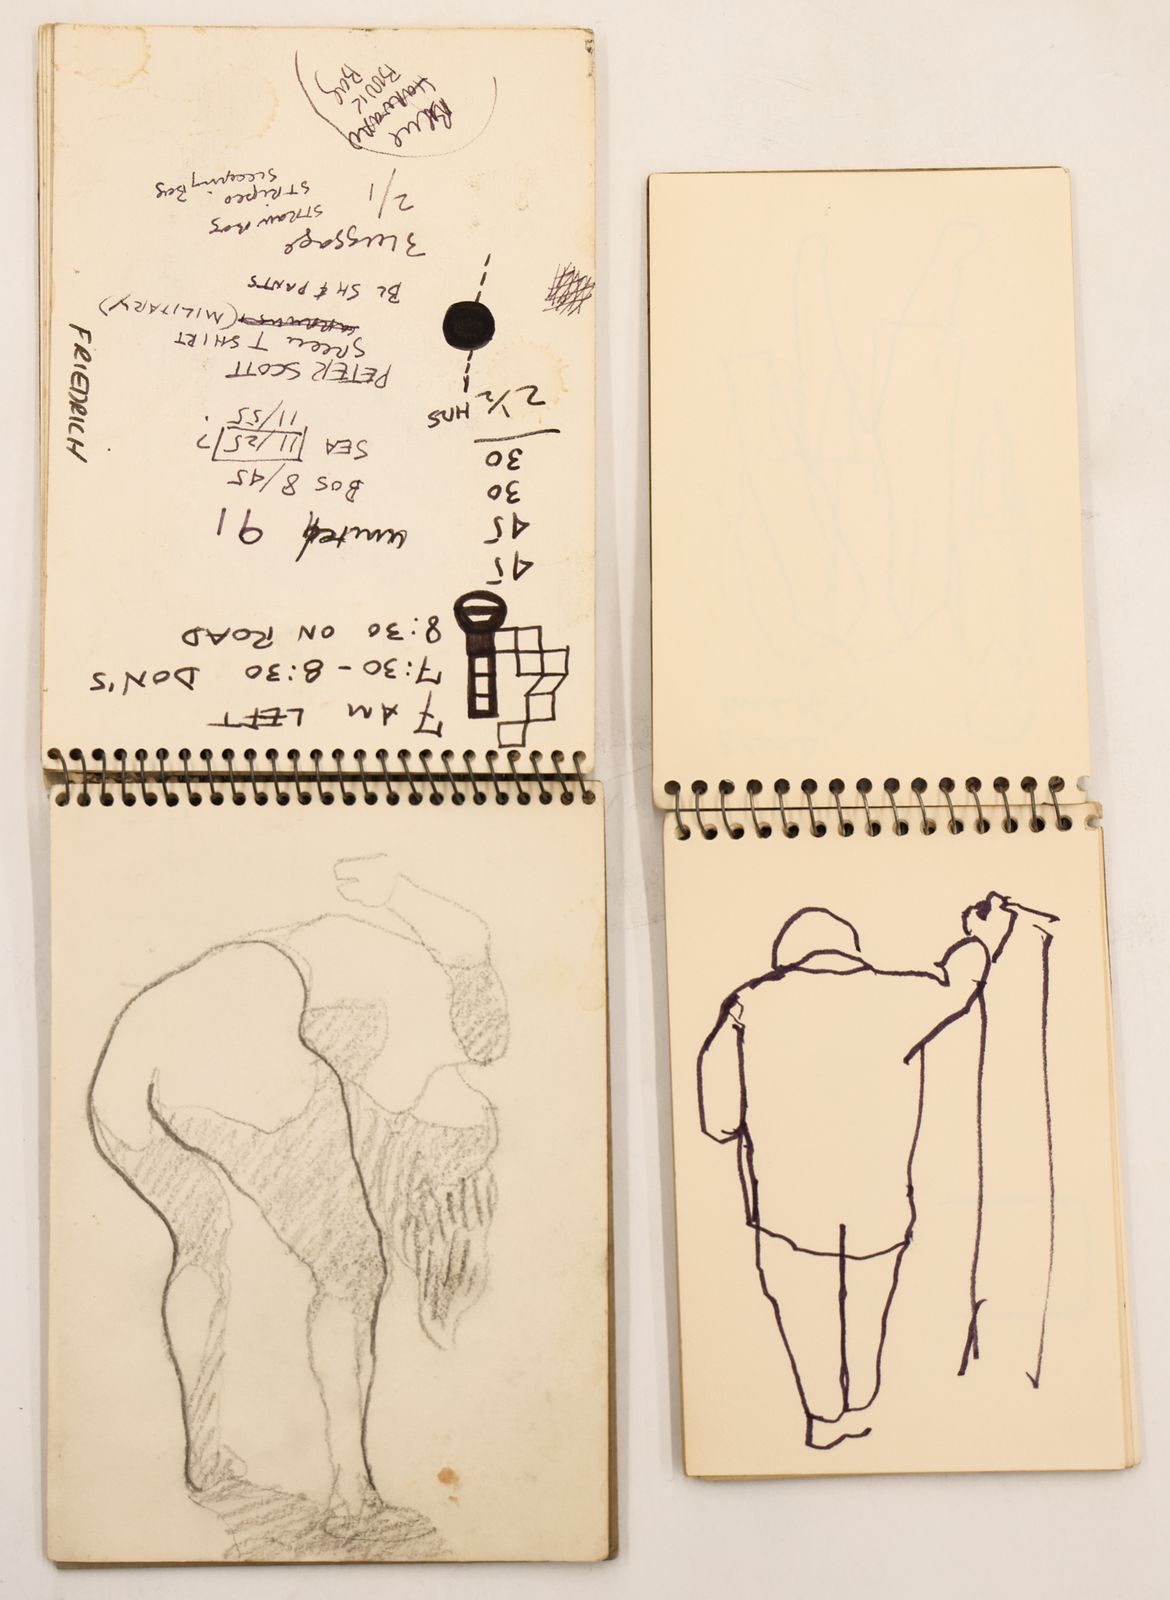 7 AM LEFT
7:30 - 8:30 DON'S
8:30 ON ROAD
45
45
30
30
2 ½ HRS
United 91
BOS 8/45
SEA 11/25 ?
11/55
PETER SCOTT
Green T SHIRT
(MILITARY)
BL SH & PANTS
3 luggage
2/1
STRAW BAG
STRIPED
Sleeping Bag
Blue
Harvard
Book
Bag
FRIEDRICH